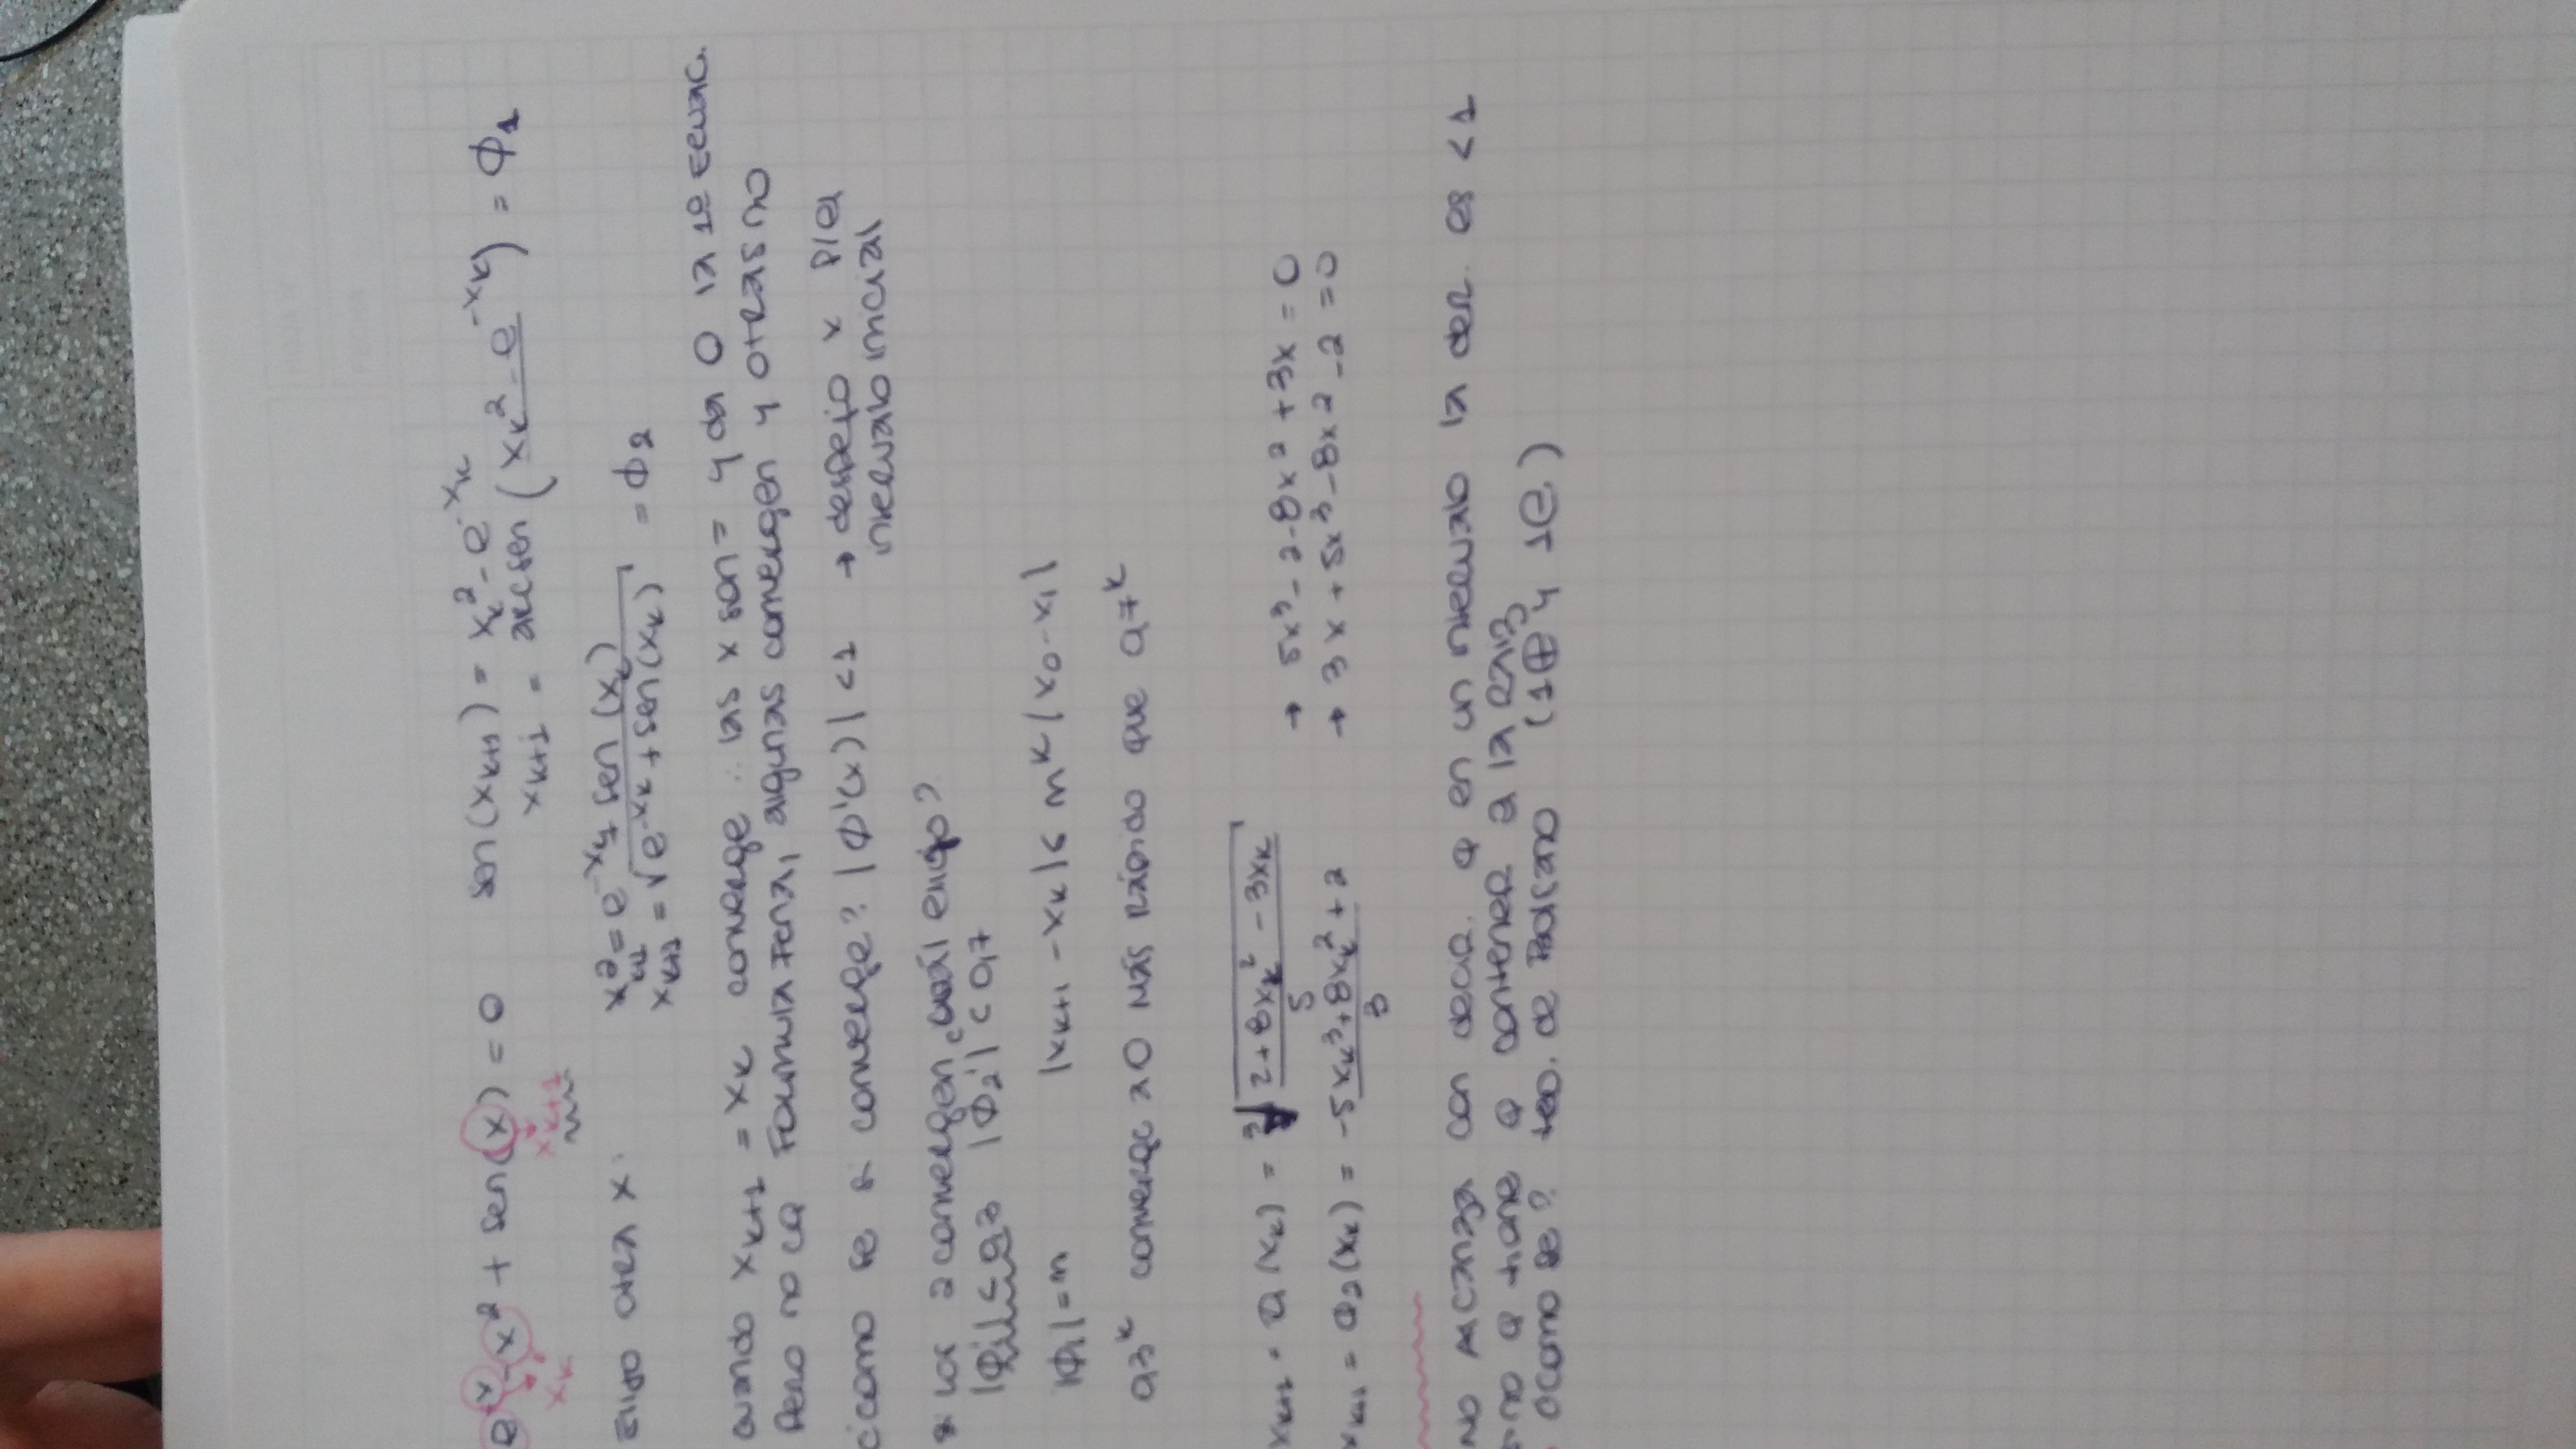 e^-x - x² + sen(x) = 0
xk
xk+1
sen(xk+1) = xk² - e^-xk
xk+1 = arcsen (xk² - e^-xk) = Φ1
Elijo otra x:
x²k+1 = e^-xk + sen (xk)
xk+1 = √e^-xk + sen(xk) = Φ2
cuando xk+1 = xk converge ∴ las x son = y da 0 la 1º Ecuac.
Pero no la Formula algunas convergen y otras no
¿como se si converge? |Φ'(x)| < 1 → despejo x p/el
intervalo inicial
si los 2 convergen ¿cuál elijo?
|Φ1'| < 0,3 |Φ2'| < 0,7
|Φ1| = m |xk+1 - xk| ≤ m^k |x0 - x1|
0,3^k converge a 0 más rápido que 0,7^k
xk+1 = Φ1(xk) = ³√(2 + 8xk² - 3xk)/5 → 5x³ - 2 - 8x² + 3x = 0
xk+1 = Φ2(xk) = (-5xk³ + 8xk² + 2)/3 → 3x + 5x³ - 8x² - 2 = 0
No alcanza con decir q en un intervalo la der. es < 1
sino q tiene q contener a la raiz
¿como se? teo. de Bolzano (1⊕ y 1⊖)
HOJA Nº
FECHA